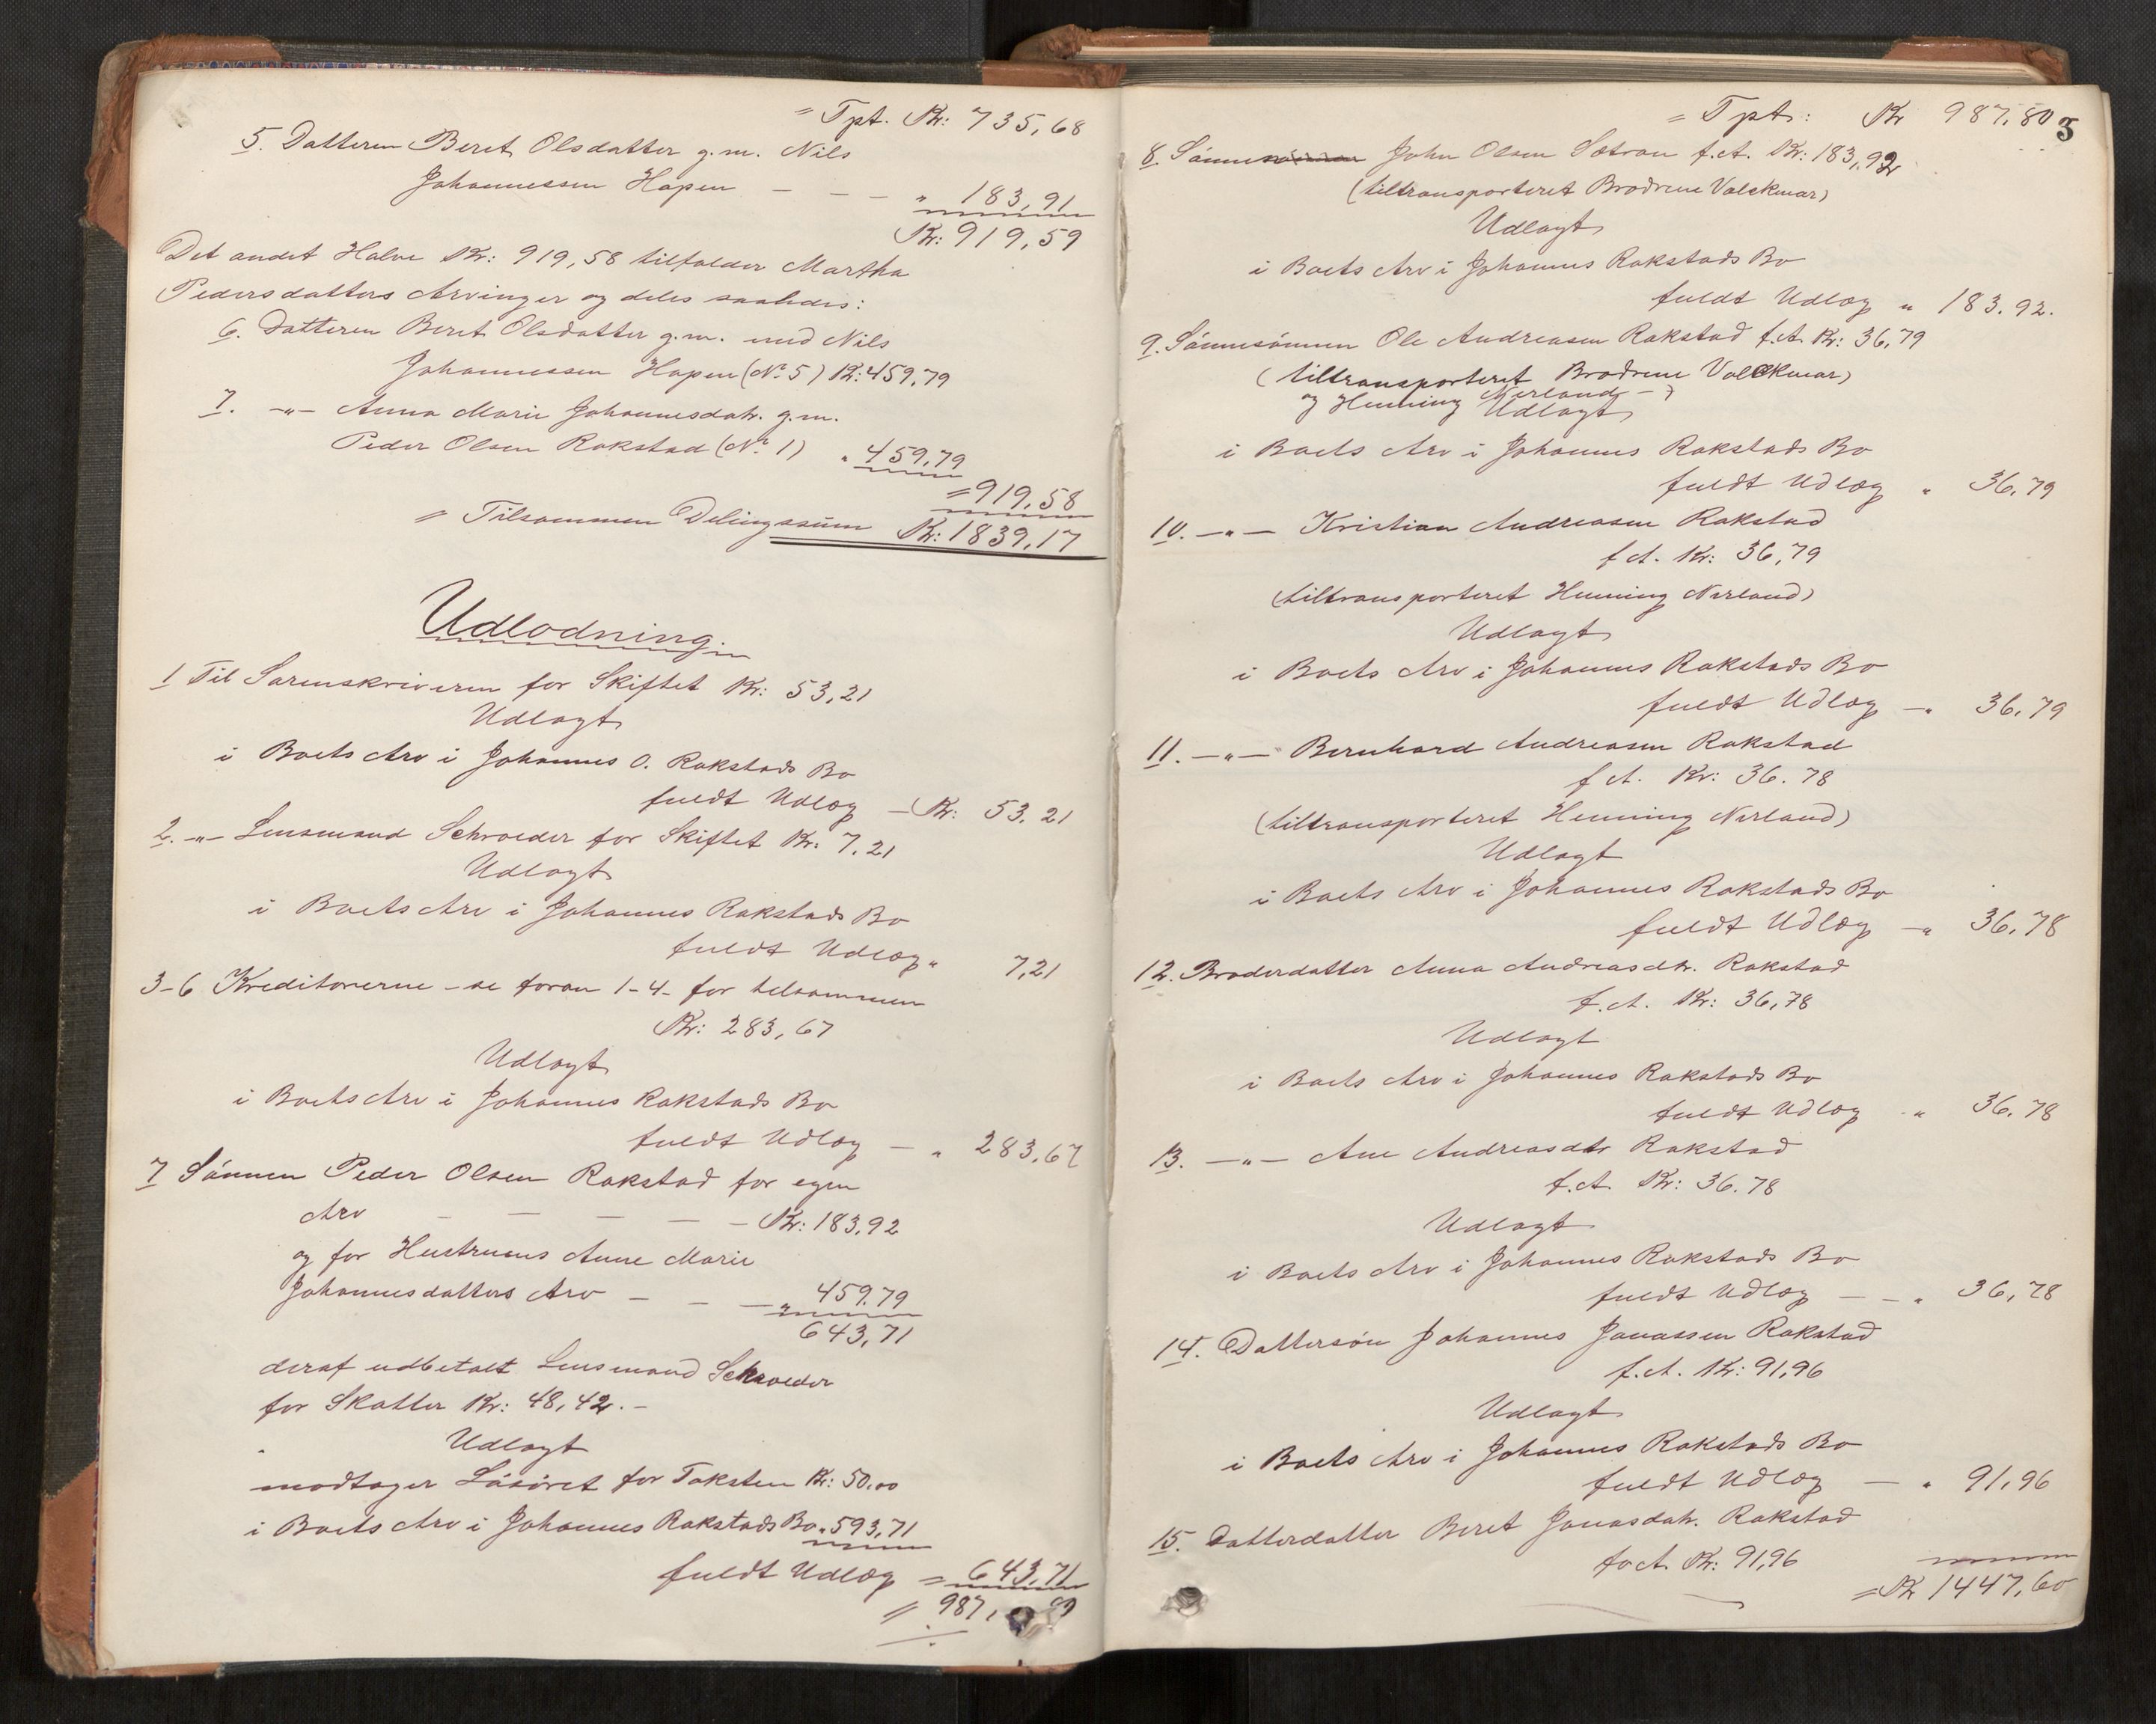 = Tpt. Kr: 735,68
5. Datteren Beret Olsdatter g.m. Nils
Johannessen Hopen — — — " 183,91
Kr: 919,59
Det andet Halve Kr: 919,58 tilfalder Martha
Pedersdatters Arvinger og deles saaledes:
6. Datteren Beret Olsdatter g.m. med Nils
Johannessen Hopen (No 5) Kr: 459,79
7. —"— Anna Marie Johannesdatr. g.m.
Peder Olsen Rokstad (No 1) " 459,79
= 919,58
= Tilsammen Delingssum Kr: 1839,17
Udlodning
1 Til Sorenskriveren for Skiftet Kr: 53,21
Udlagt
i Boets Arv i Johannes O. Rokstads Bo
fuldt Udlæg — Kr: 53,21
2. —"— Lensmand Schroeder for Skiftet Kr: 7,21
Udlagt
i Boets Arv i Johannes Rokstads Bo
fuldt Udlæg " 7,21
3-6 Kreditorerne - se foran 1-4- for tilsammen
Kr: 283,67
Udlagt
i Boets Arv i Johannes Rokstads Bo
fuldt Udlæg — " 283,67
7 Sønnen Peder Olsen Rokstad for egen
Arv — — — — — Kr: 183,92
og for Hustruens Anne Marie
Johannesdatters Arv — — — " 459,79
643,71
deraf udbetalt Lensmand Schroeder
for Skatter Kr: 48,42. —
Udlagt
modtager Løsøret for Taksten Kr: 50,00
i Boets Arv i Johannes Rokstads Bo " 593,71
fuldt Udlæg = 643,71
= 987,
= Tpt: Kr 987,80
3
8. Sønnen John Olsen Sætran f.A. Kr: 183,92
(tiltransporteret Brødrene Volckmar)
Udlagt
i Boets Arv i Johannes Rokstads Bo
fuldt Udlæg " 183.92.
9. Sønnesønnen Ole Andreasen Rokstad f.A. Kr: 36,79
(tiltransporteret Brødrene Volckmar)
og Henning Nerland —)
Udlagt
i Boets Arv i Johannes Rokstads Bo
fuldt Udlæg " 36,79
10. —"— Kristian Andreasen Rokstad
f A. Kr: 36,79
(tiltransporteret Henning Nerland)
Udlagt
i Boets Arv i Johannes Rokstads Bo
fuldt Udlæg —" 36,79
11. —"— Bernhard Andreasen Rokstad
f A. Kr: 36.78
(tiltransporteret Henning Nerland)
Udlagt
i Boets Arv i Johannes Rokstads Bo
fuldt Udlæg —" 36,78
12. Broderdatter Anna Andreasdtr. Rokstad
f.A. Kr: 36,78
Udlagt
i Boets Arv i Johannes Rokstads Bo
fuldt Udlæg " 36.78
13. —"— Ane Andreasdtr Rokstad
f.A. Kr: 36.78
Udlagt
i Boets Arv i Johannes Rokstads Bo
fuldt Udlæg — — " 36,78
14. Dattersøn Johannes Jonassen Rokstad
f.A. Kr: 91,96
Udlagt
i Boets Arv i Johannes Rokstads Bo
fuldt Udlæg — " 91,96
15. Datterdatter Beret Jonasdatr. Rokstad
for A. Kr: 91,96
= Kr 1447,60